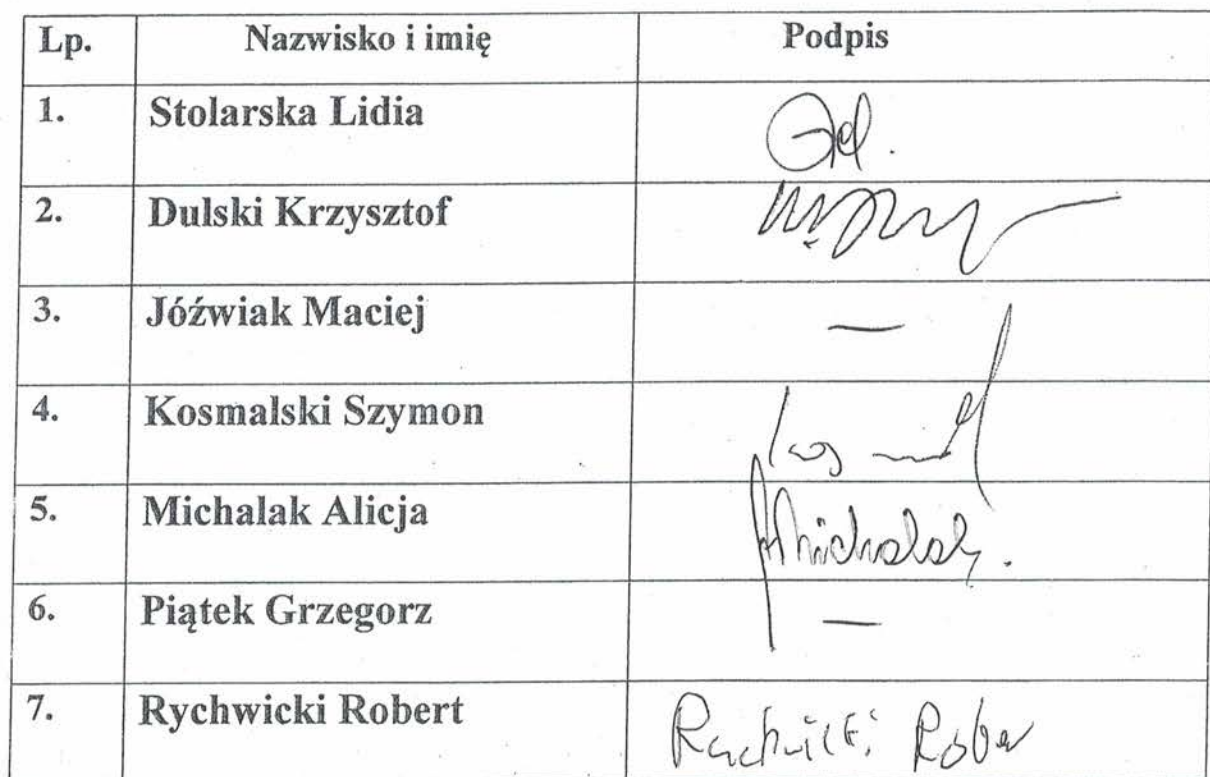 Lp. Nazwisko i imię Podpis
1. Stolarska Lidia
2. Dulski Krzysztof
3. Jóźwiak Maciej —
4. Kosmalski Szymon
5. Michalak Alicja AMichalak.
6. Piątek Grzegorz —
7. Rychwicki Robert